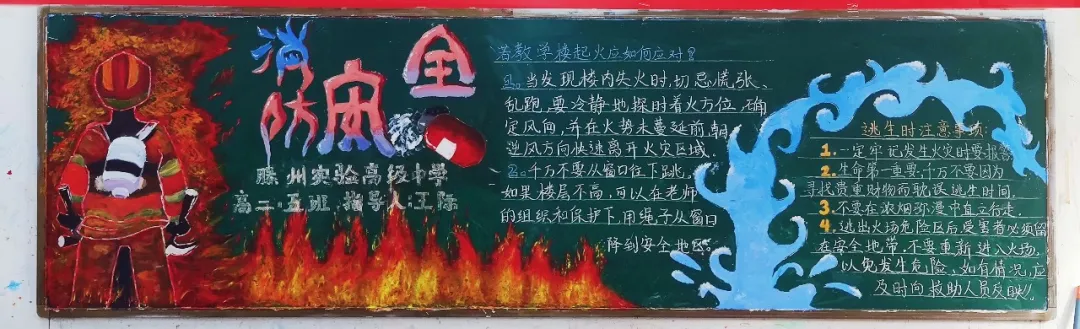 消防安全
滕州实验高级中学
高二·五班 指导人:王际
若教学楼起火应如何应对?
1.当发现楼内失火时,切忌慌张、
乱跑,要冷静地探明着火方位,确
定风向,并在火势未蔓延前,朝
逆风方向快速离开火灾区域.
2.千万不要从窗口往下跳,
如果楼层不高,可以在老师
的组织和保护下,用绳子从窗口
降到安全地区。
逃生时注意事项:
1.一定牢记发生火灾时要报警
2.生命第一重要,千万不要因为
寻找贵重财物而耽误逃生时间.
3.不要在浓烟弥漫中直立行走.
4.逃出火场危险区后,受害者必须留
在安全地带.不要重新进入火场,
以免发生危险,如有情况,应
及时向救助人员反映!!